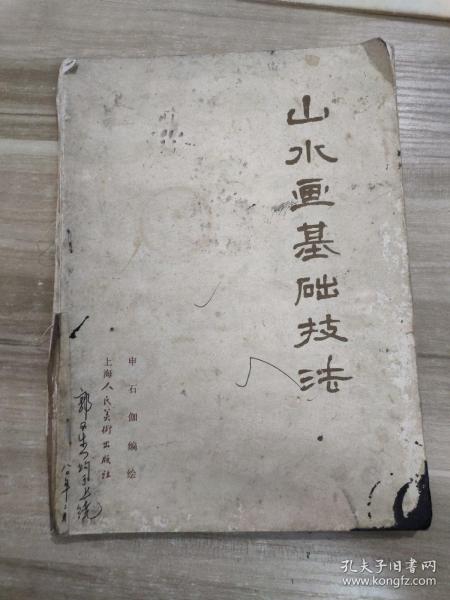 山水画基础技法
申石伽编绘
上海人民美術出版社
孔夫子旧书网
www.kongfz.com